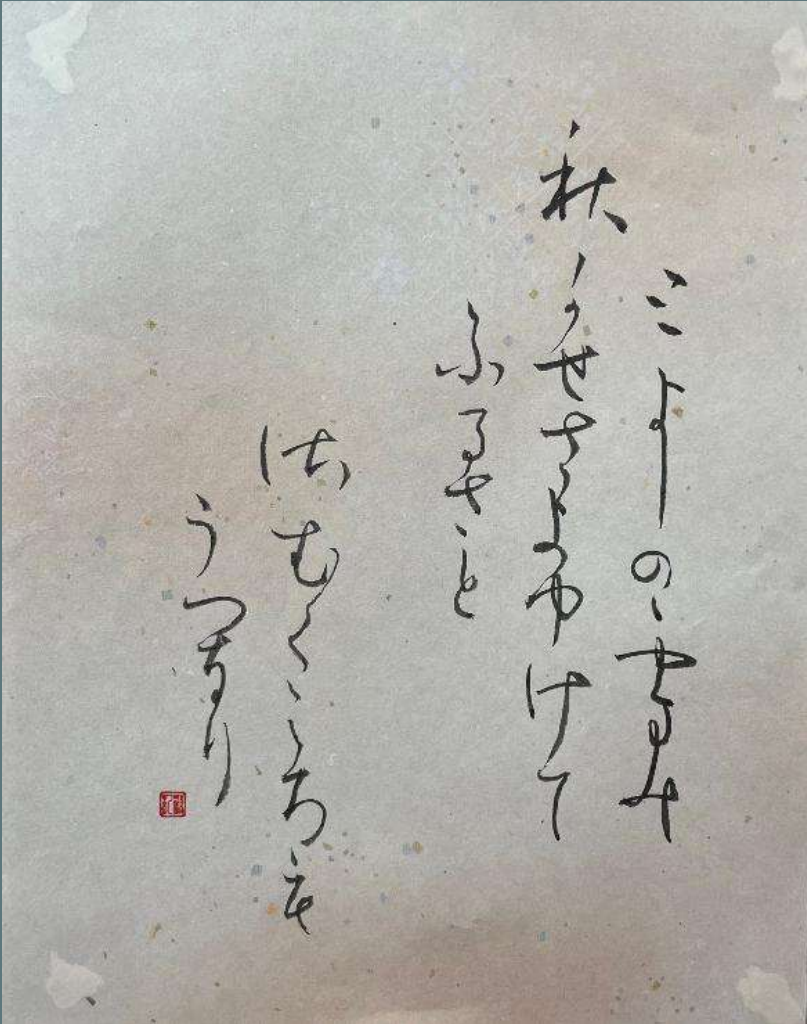 三よしのゝやまの
秋かせさよふけて
ふるさと
さむくころも
うつなり